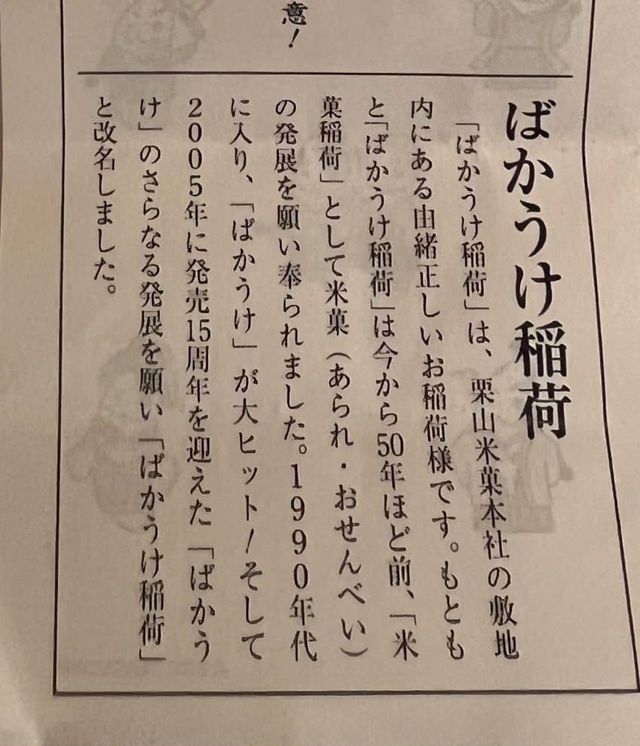 意！
ばかうけ稲荷
「ばかうけ稲荷」は、栗山米菓本社の敷地
内にある由緒正しいお稲荷様です。もとも
と「ばかうけ稲荷」は今から50年ほど前、「米
菓稲荷」として米菓（あられ・おせんべい）
の発展を願い奉られました。1990年代
に入り、「ばかうけ」が大ヒット！そして
2005年に発売15周年を迎えた「ばかう
け」のさらなる発展を願い「ばかうけ稲荷」
と改名しました。